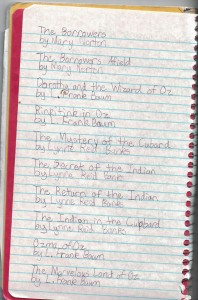 The Borrowers
by Mary Norton
The Borrowers Afield
by Mary Norton
Dorothy and the Wizard of Oz
by L. Frank Baum
Rinkitink in Oz
by L. Frank Baum
The Mystery of the Cubard
by Lynne Reid Banks
The Secret of the Indian
by Lynne Reid Banks
The Return of the Indian
by Lynne Reid Banks
The Indian in the Cupbard
by Lynne Reid Banks
Ozma of Oz
by L. Frank Baum
The Marvelous Land of Oz
by L. Frank Baum